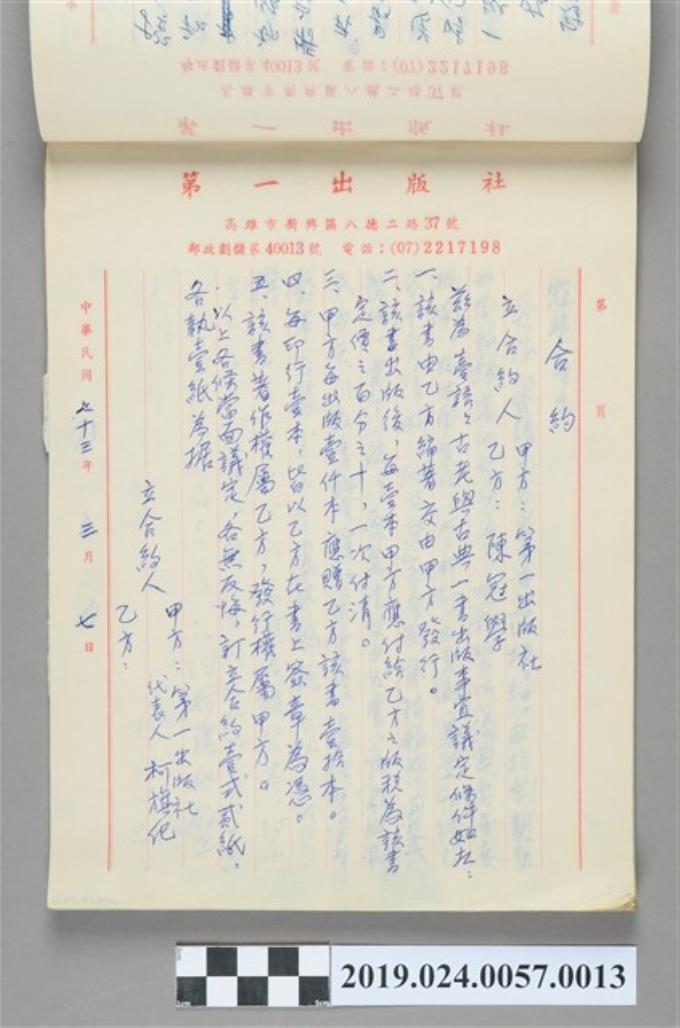 郵政劃儲第40013號 電話:(07)2217198
高雄市新興區八德二路37號
第一出版社
第一出版社
高雄市新興區八德二路37號
郵政劃儲第40013號 電話:(07)2217198
第 頁
合約
立合約人 甲方:第一出版社
乙方:陳冠學
茲為臺語之古老與古典一書出版事宜議定條件如左:
一、該書由乙方編著交由甲方發行。
二、該書出版後,每壹本甲方應付給乙方之版稅為該書
定價之百分之十,一次付清。
三、甲方每出版壹仟本應贈乙方該書壹拾本。
四、每印行壹本,皆以乙方在書上簽章為憑。
五、該書著作權屬乙方,發行權屬甲方。
以上各條當面議定,各無反悔,訂立合約壹式貳紙,
各執壹紙為據
立合約人
甲方:第一出版社
代表人 柯旗化
乙方:
中華民國 七十三年 三月 七日
2019.024.0057.0013